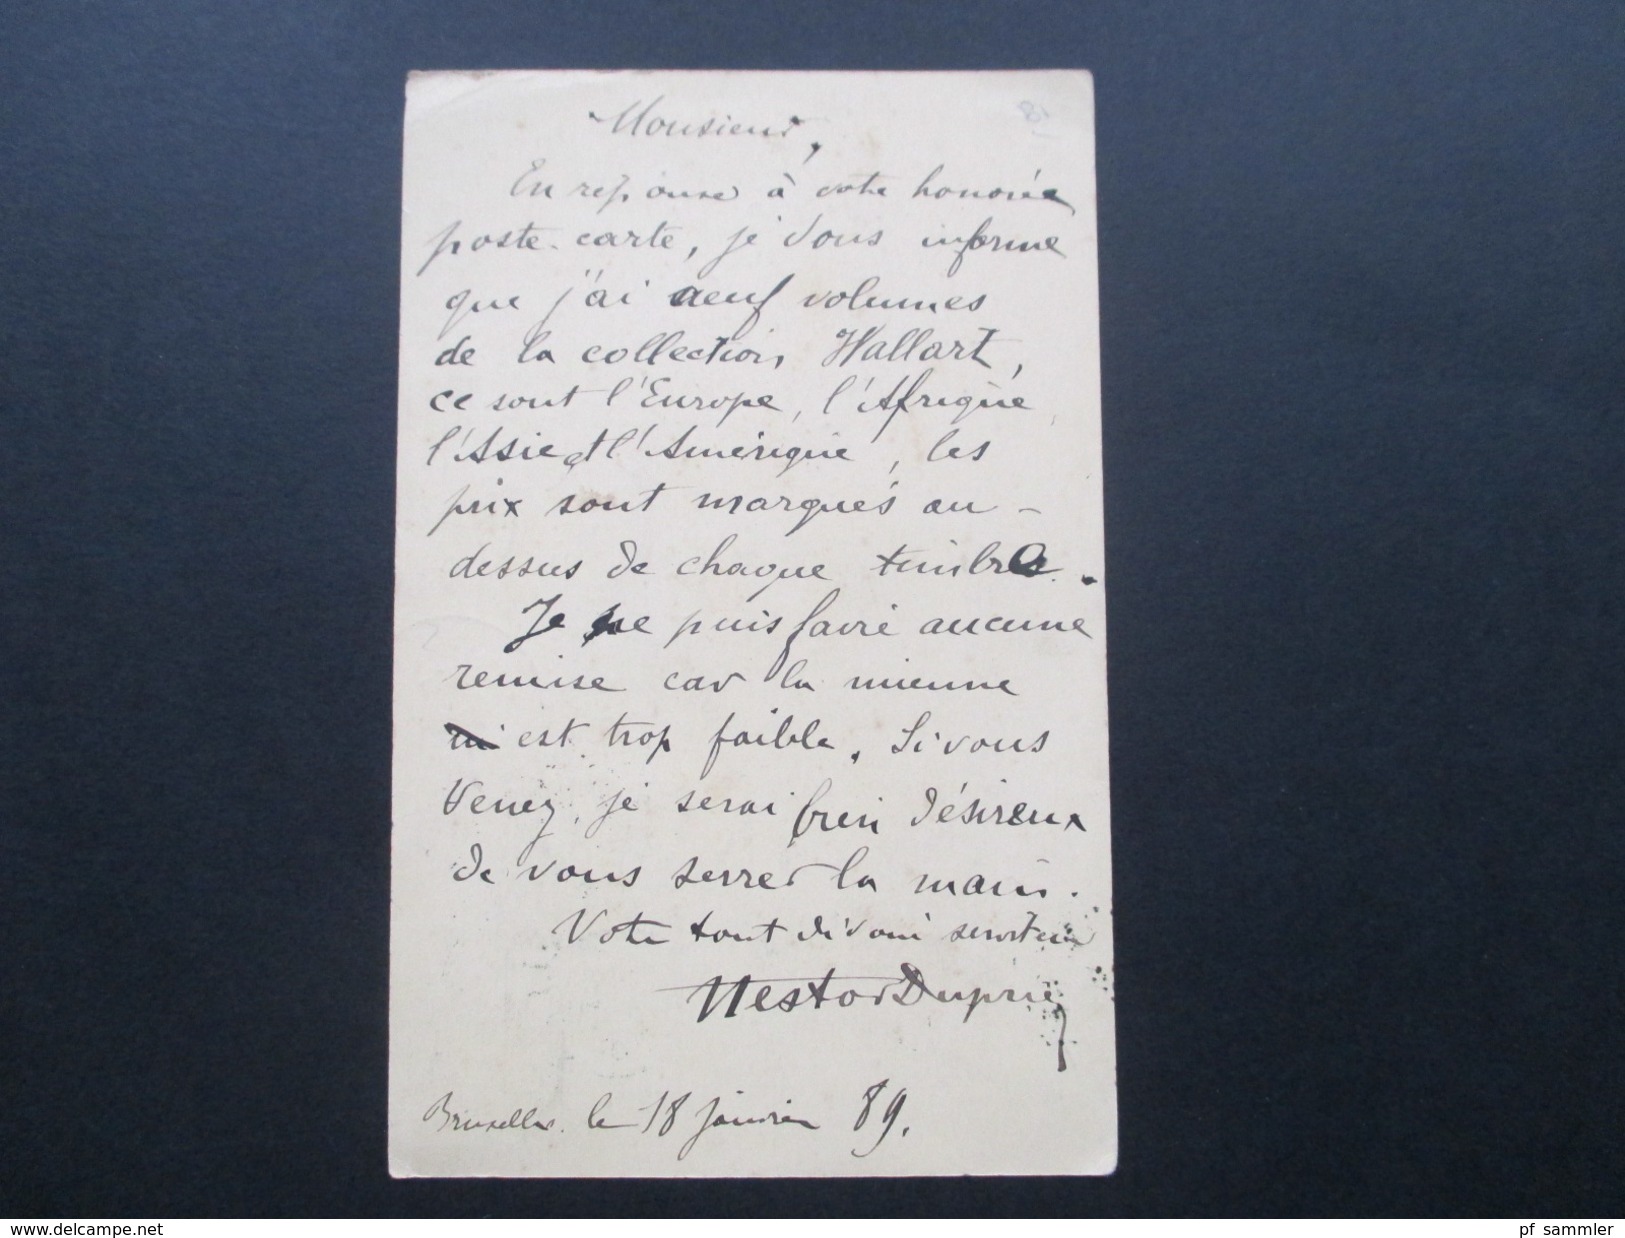 Monsieur,
En reponse à votre honorée
poste-carte, je vous informe
que j'ai neuf volumes
de la collection Wallart,
ce sont l'Europe, l'Afrique
l'Assie et l'Amérique, les
prix sont marqués au-
dessus de chaque timbre.
Je ne puis faire aucune
remise car la mienne
est trop faible. Si vous
Venez, je serai bien désireux
de vous serrer la main.
Votre tout dévoué serviteur
Nestor Dupriez
Bruxelles. le 18 janvier 89.
www.delcampe.net
pf sammler